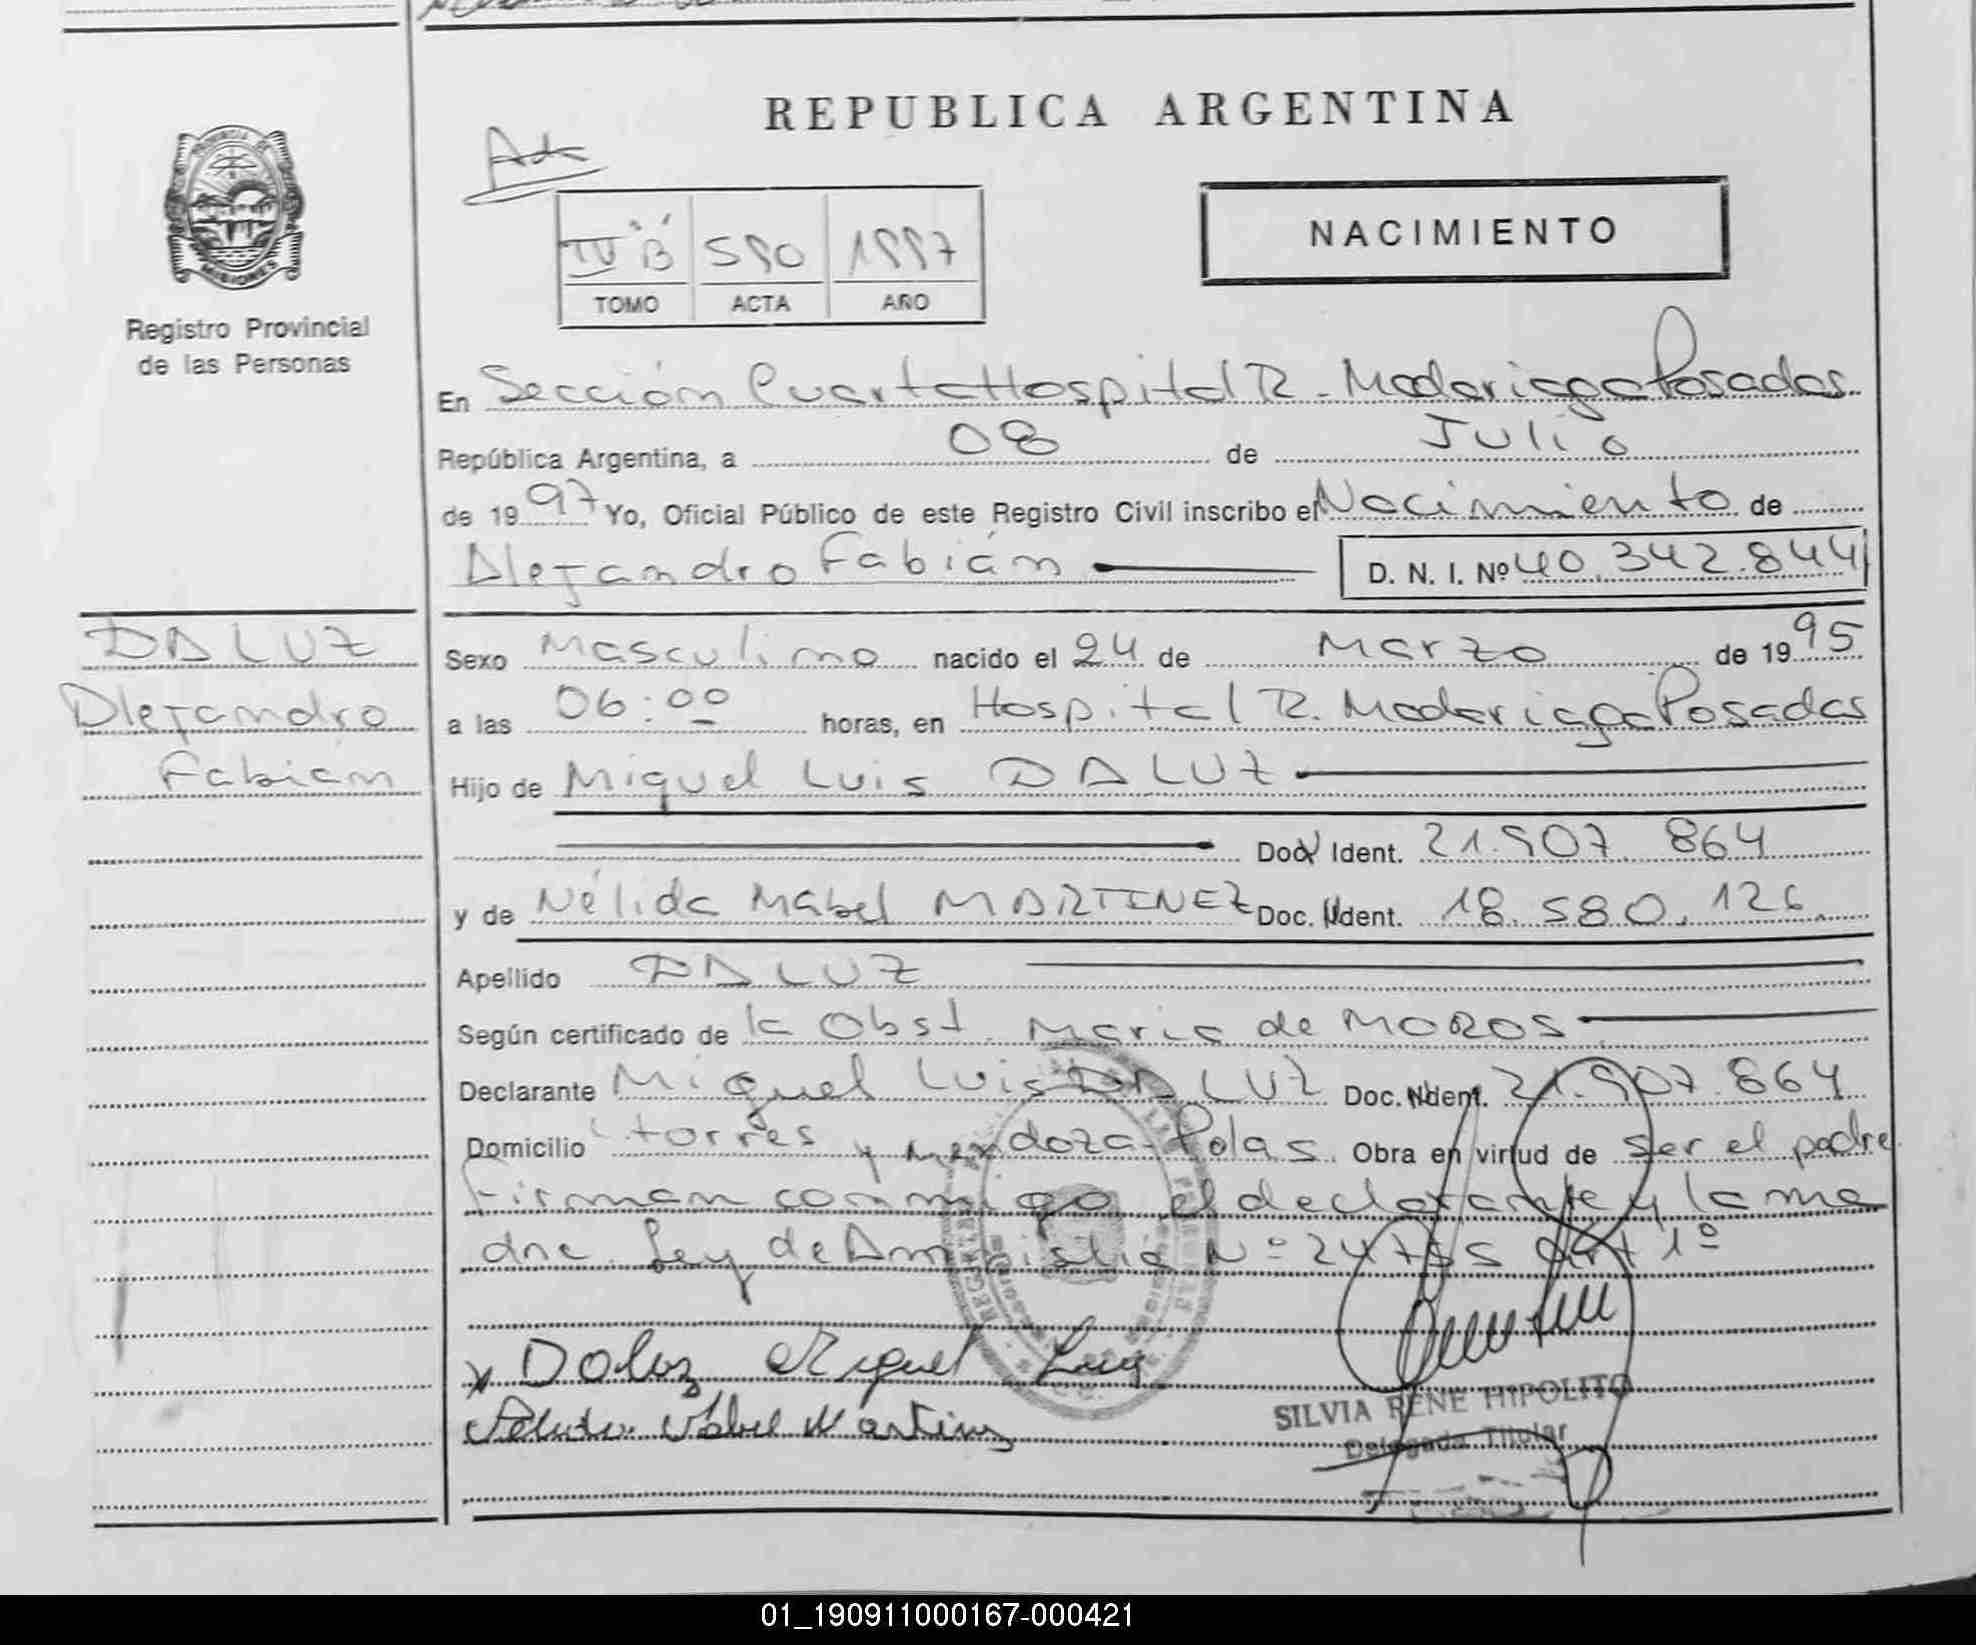 REPUBLICA ARGENTINA
PROVINCIA DE
MISIONES
Registro Provincial
de las Personas
NACIMIENTO
IV "B" 590 1997
TOMO ACTA AÑO
En Sección Cuarta Hospital R. Madariaga Posadas
República Argentina, a 08 de Julio
de 1997 Yo, Oficial Público de este Registro Civil inscribo el Nacimiento de
Alejandro Fabián D. N. I. Nº 40.342.844
DA LUZ
Alejandro
Fabián
Sexo Masculino nacido el 24 de Marzo de 1995
a las 06:00 horas, en Hospital R. Madariaga Posadas
Hijo de Miguel Luis DA LUZ
Doc. Ident. 21.907.864
y de Nélida Mabel MARTINEZ Doc. Ident. 18.580.126
Apellido DA LUZ
Según certificado de la Obst. Maria de MOROS
Declarante Miguel Luis DA LUZ Doc. Ident. 21.907.864
Domicilio torres y Mendoza Pdas. Obra en virtud de ser el padre
Firman conmigo el declarante y la ma
dre. Ley de Amnistia Nº 24755 art 1º
x Daluz Miguel Luis
Nelida Mabel Martinez
SILVIA RENE HIPOLITO
Delegada Titular
01_190911000167-000421